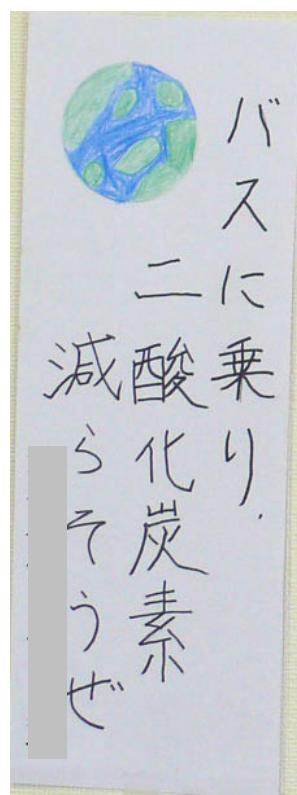 バスに乗り.
二酸化炭素
減らそうぜ